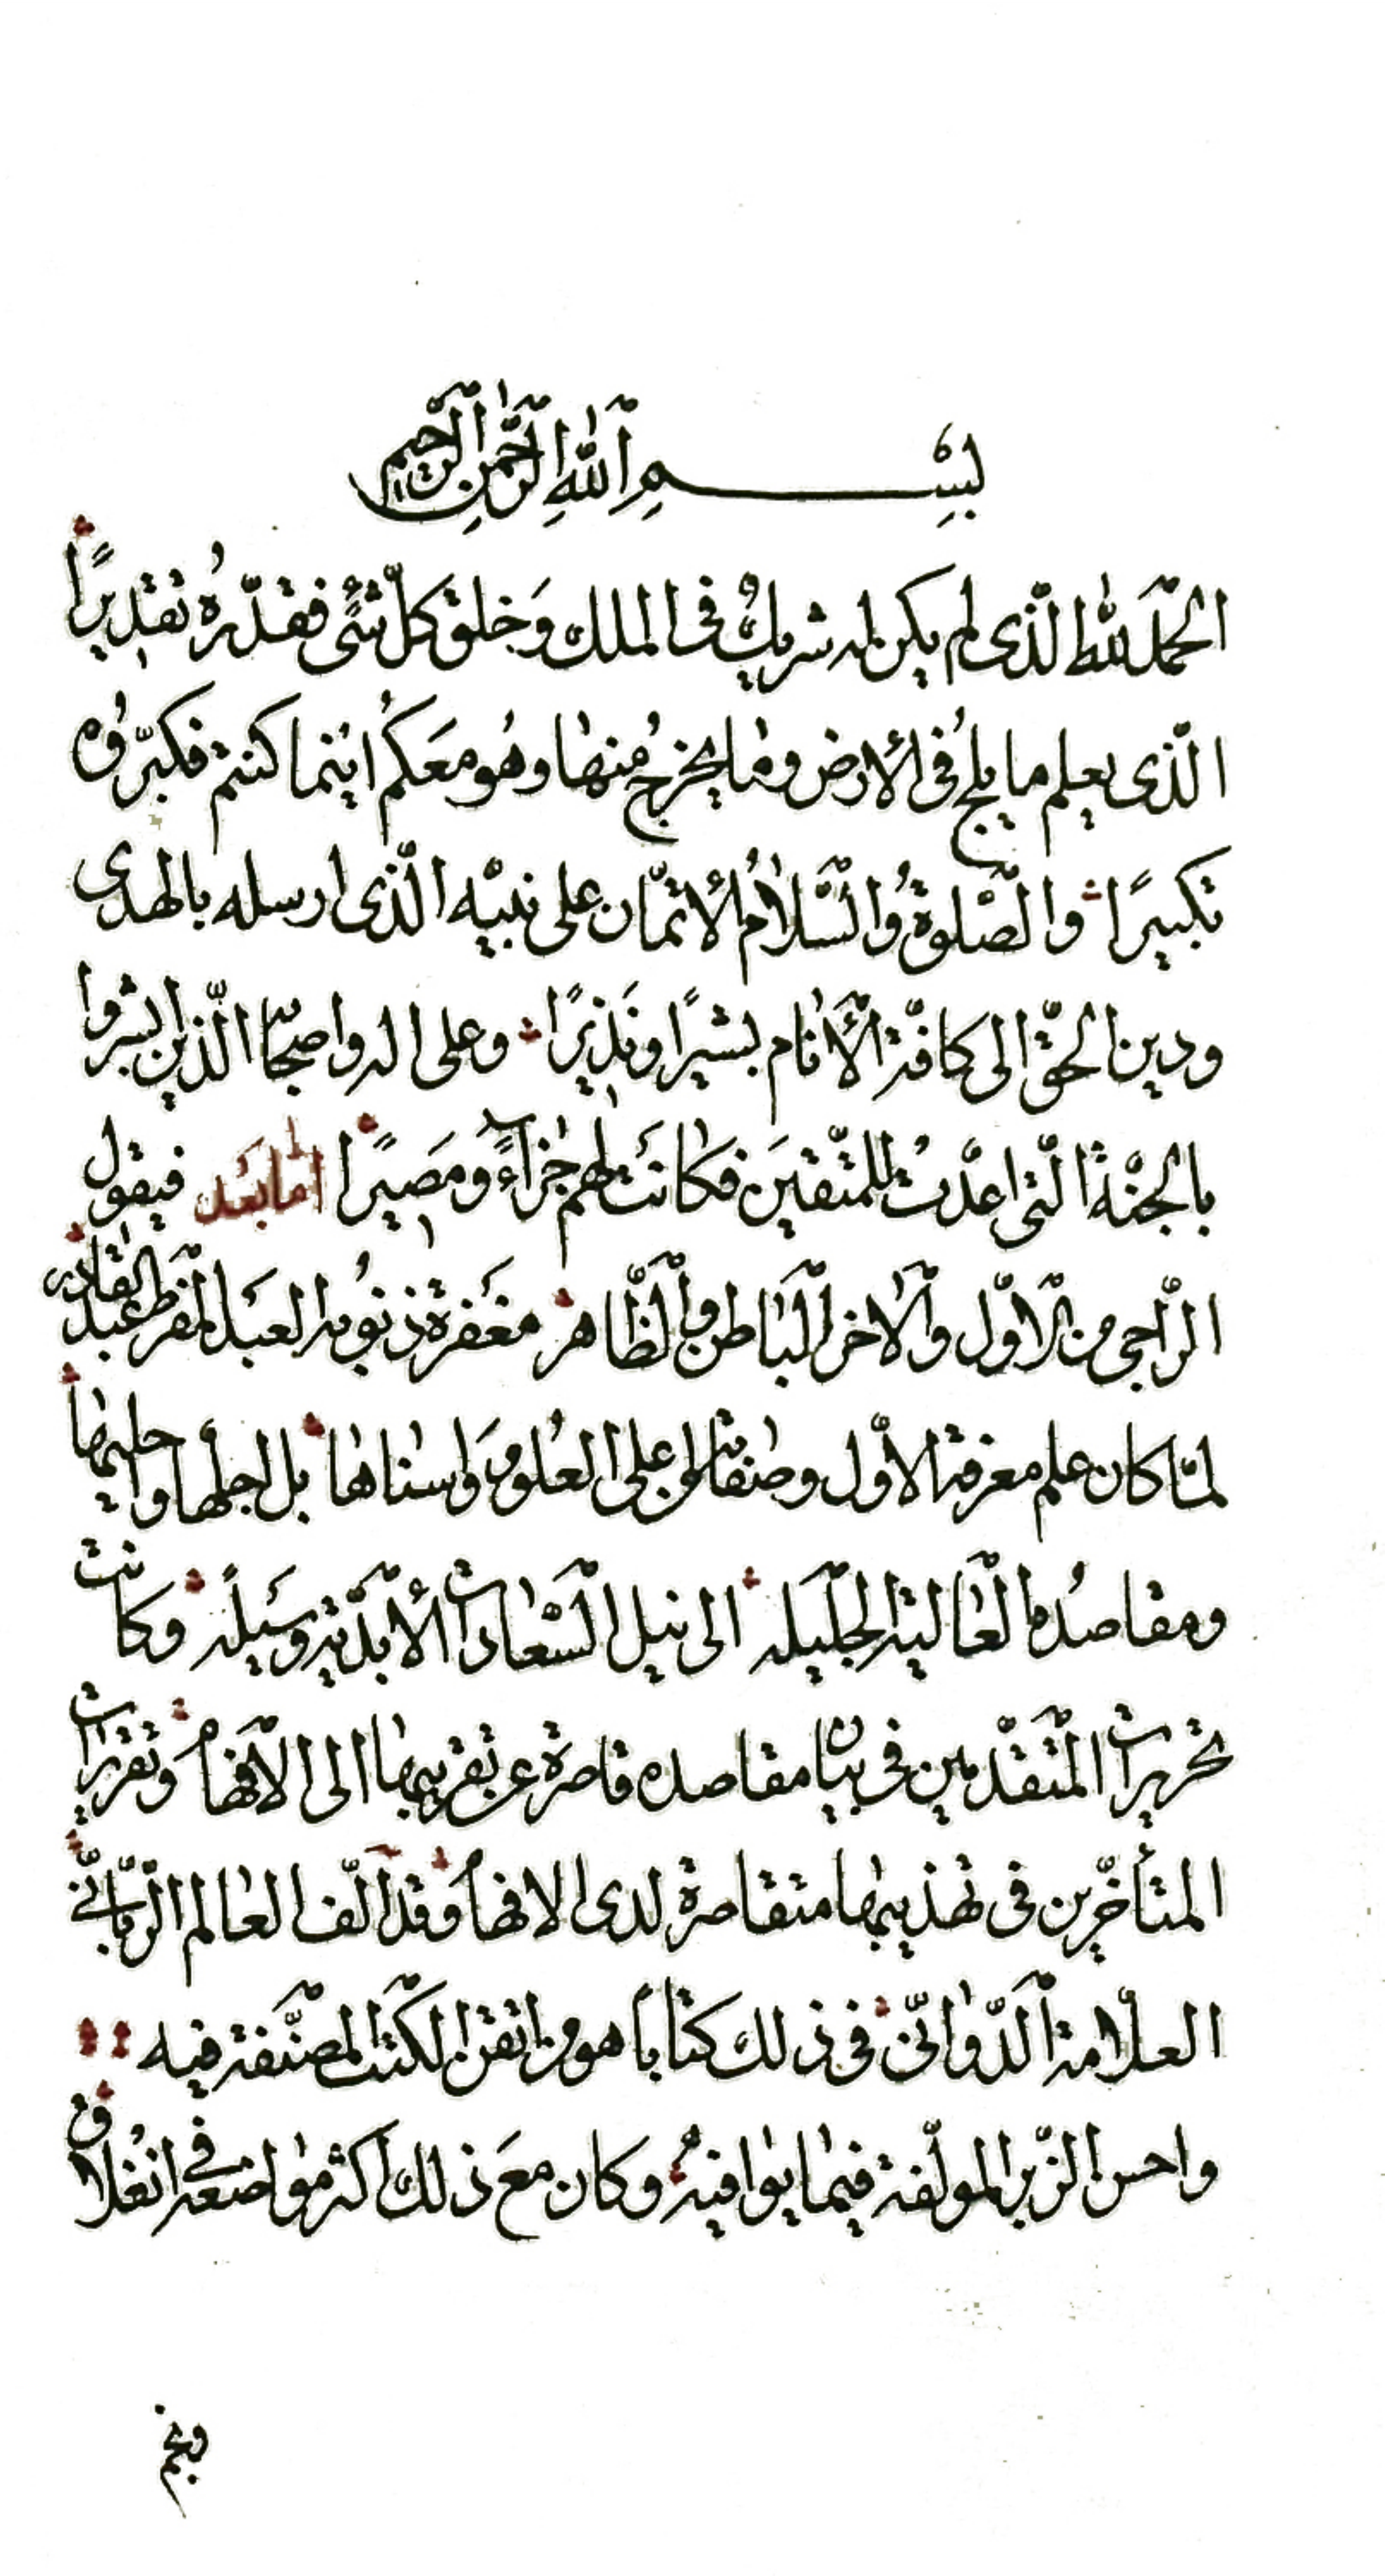 بِسْمِ اللّٰهِ الرَّحْمٰنِ الرَّحِيمِ
الحمد للّٰه الّذى لم يكن له شريكٌ فى الملك وَخلق كلّ شئٍ فقدّرهُ تقديرًا
الّذى يعلم ما يلجُ فى الأرض وما يخرجُ منها وهُو معَكُم اينما كنتم فكبّروُه
تكبيرًا والصّلوةُ والسَّلامُ الأتمّان على نبيّه الّذى ارسله بالهدى
ودين الحقّ الى كافّة الأنام بشيرًا ونَذيرًا وعلى اله واصحابه الّذين بشروا
بالجنّة الّتى اعدّت للمتّقينَ فكانت لهم جزاءً ومَصيرًا امّا بَعَد فيقول
الرّاجى من الاوّل والاخر الباطن والظّاهر مغفرة ذنوبه العبد المفرط عبد القادر
لمّا كان علم معرفة الأوّل وصفاته من اعلى العُلوم وَاسناها بل اجلها واحليها
ومقاصدُه العالية الجليله الى نيل السّعادات الأبدّية وسَيلة وكانت
تحريرات المتقدّمين فى بيان مقاصده قاصرة عن تقريبها الى الافهام وَتقريرات
المتأخّرين فى تهذيبها متقاصرة لدى الافهام وَقد الّف العالم الرّبّانّى
العلّامة الدّوانىّ فى ذلك كتابًا هو من اتقن الكتب المصنّفة فيه
واحسن الزّبر المولّفة فيما يوافيه وكان معَ ذلك اكثر مواضعه فى انغلاق